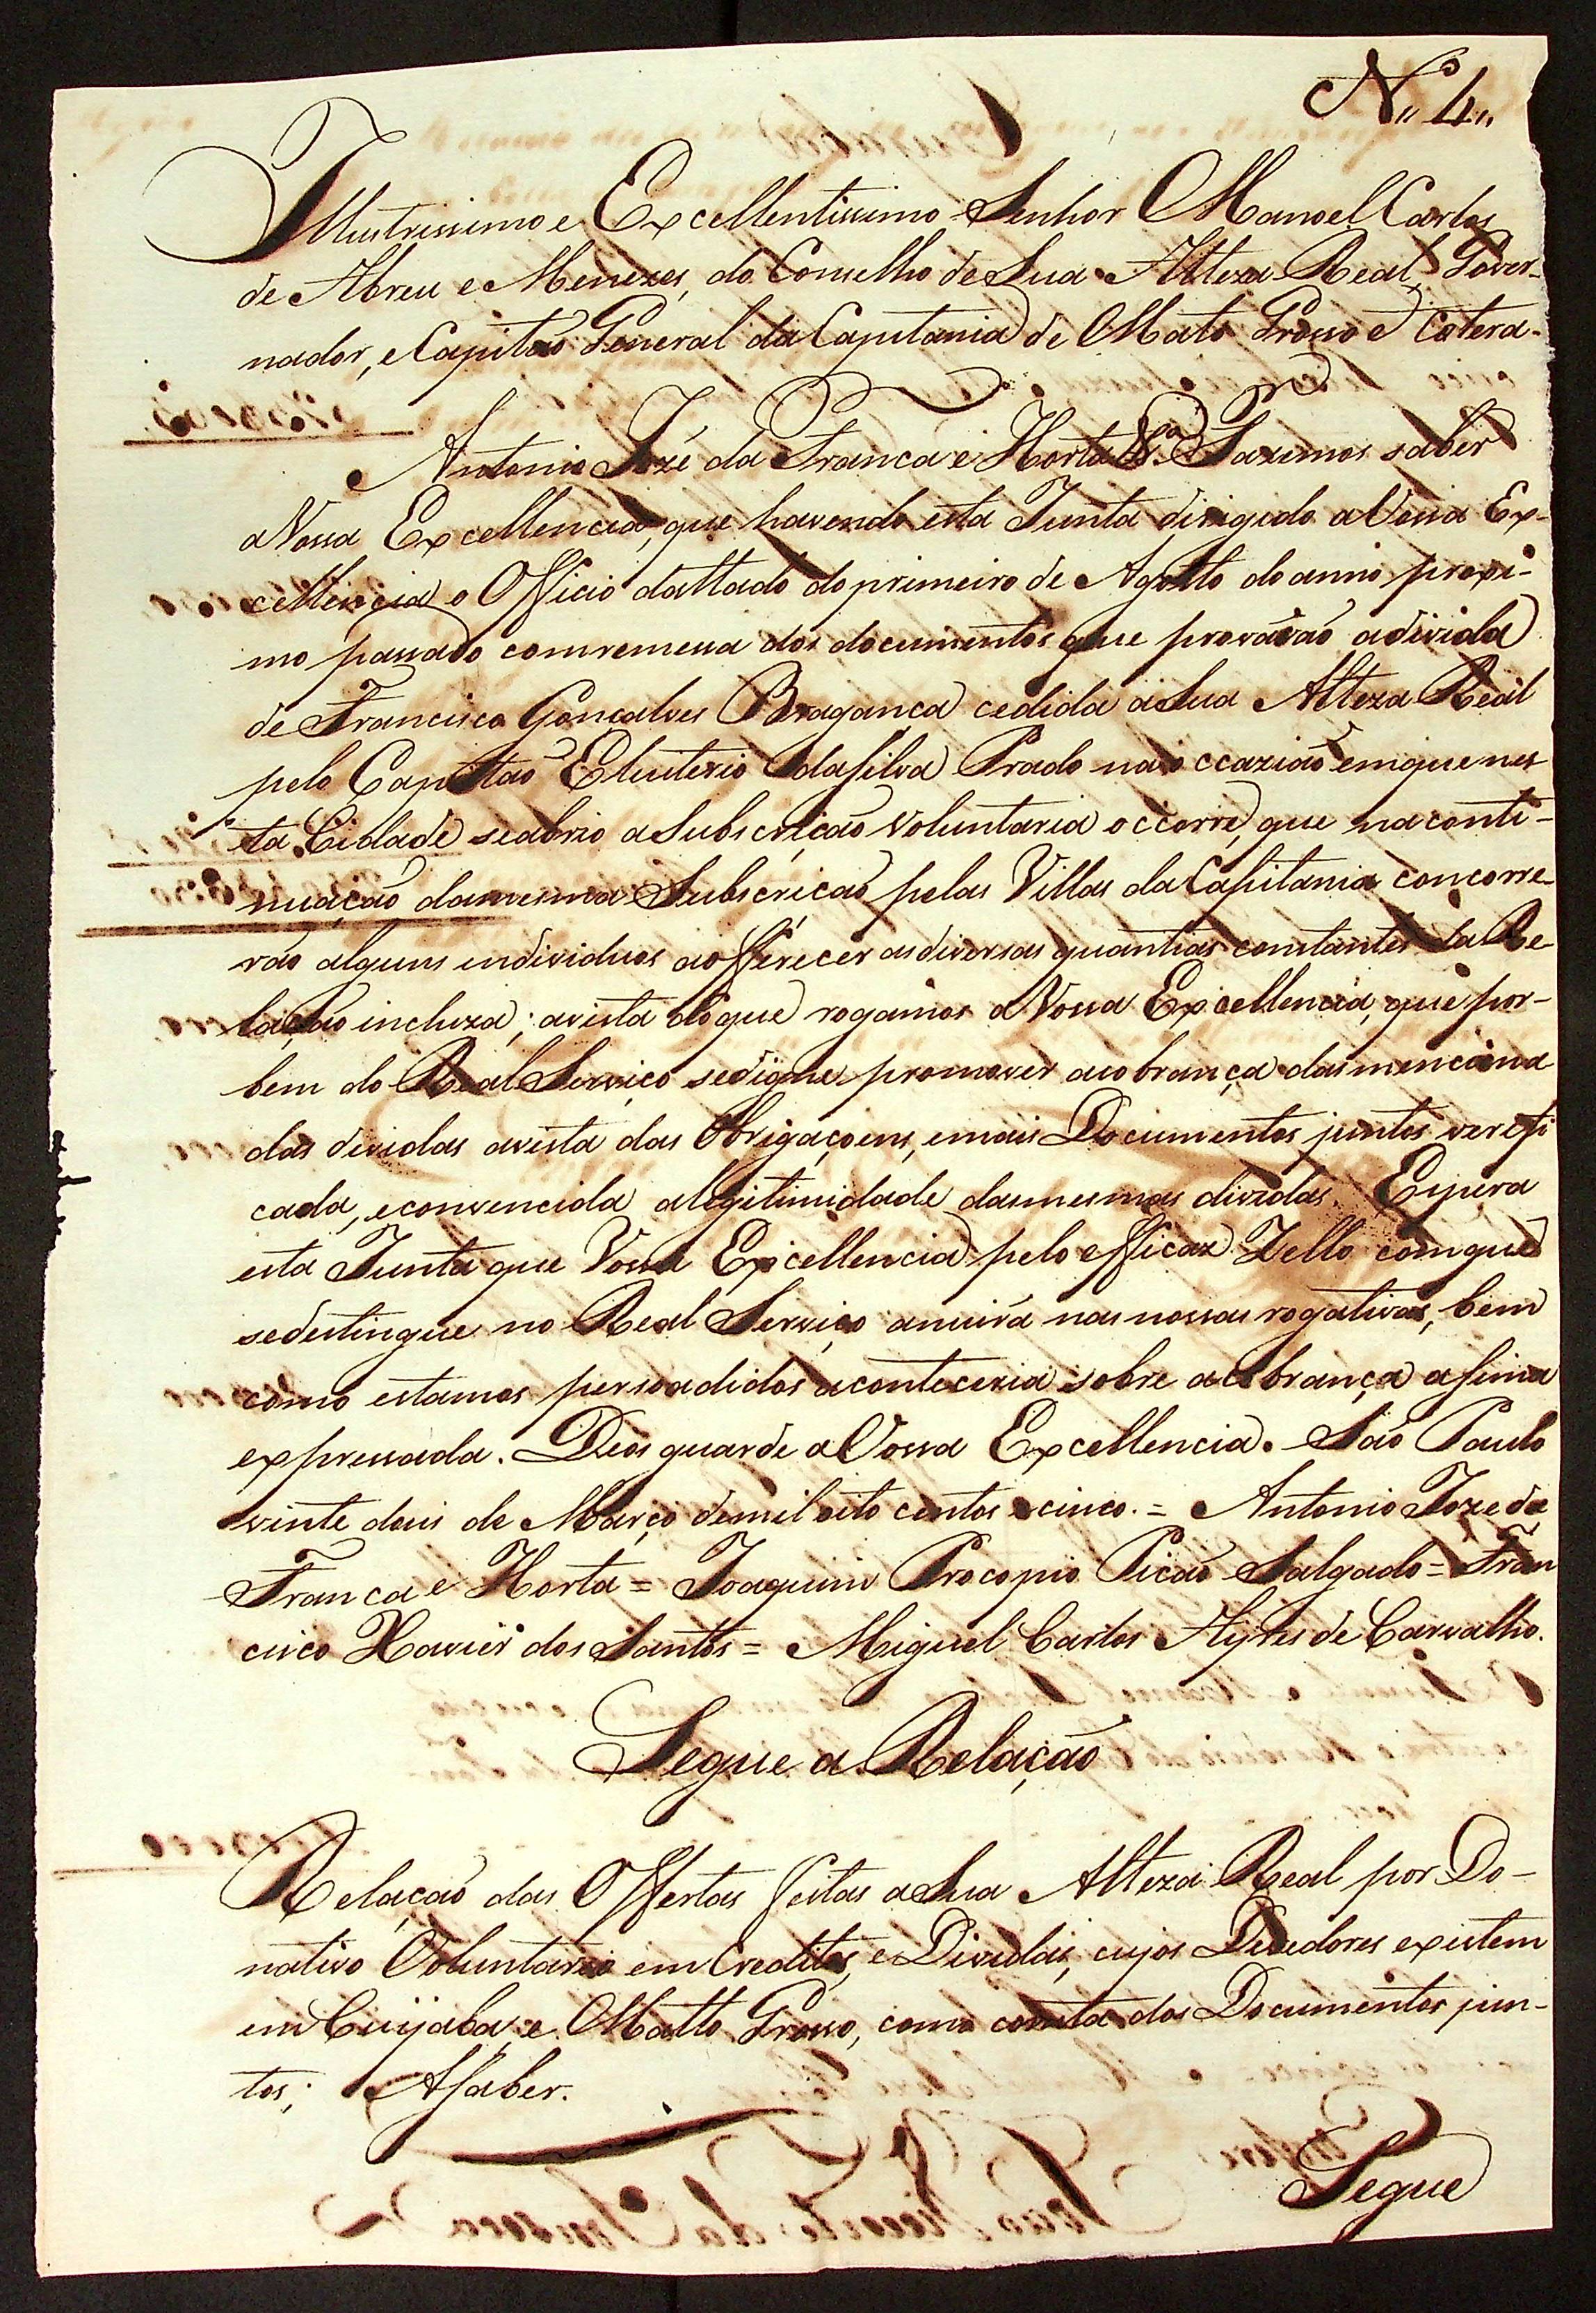 N.º 4.
Illustrissimo e Excellentissimo Senhor Manoel Carlos
de Abreu e Menezes, do Conselho de Sua Alteza Real, Gover-
nador, e Capitaõ General da Capitania de Mato Grosso e Cetera.
Antonio Jozé da Franca e Horta &.ª Fazemos saber
a Vossa Excellencia, que havendo esta Junta dirigido a Vossa Ex-
cellencia o Officio dattado do primeiro de Agosto do anno proxi-
mo passado com remessa dos documentos que provavaõ a divida
de Francisco Gonçalves Bragança cedida a Sua Alteza Real
pelo Capitaõ Eluiterio da Silva Prado na occaziaõ em que nes
ta Cidade se abrio a Subscriçaõ voluntaria occorre, que na conti-
nuaçaõ da mesma Subscriçaõ pelas Villas da Capitania concorre-
raõ alguns individuos a offerecer as diversas quantias constantes da Re-
laçaõ incluza; a vista do que rogamos a Vossa Excellencia, que por-
bem do Real Serviço se digne promover a cobrança das menciona
das dividas a vista das Obrigaçoens, e mais Documentos juntos verefi
cada, e convencida a legitimidade das mesmas dividas. Espera
esta Junta que Vossa Excellencia pelo efficaz Zello com que
se destingue no Real Serviço anuirá nas nossas rogativas, bem
como estamos persoadidos aconteceria sobre a cobrança asima
expressada. Deos guarde a Vossa Excellencia. Saõ Paulo
vinte dois de Março de mil oito centos e cinco. = Antonio Joze da
Franca e Horta = Joaquim Procopio Picaõ Salgado = Fran
cisco Xavier dos Santos = Miguel Carlos Ayres de Carvalho.
Segue a Relaçaõ
Relaçaõ das Offertas feitas a Sua Alteza Real por Do-
nativo Voluntario em Creditos, e Dividas, cujos Devedores existem
em Cuyabá, e Matto Grosso, como consta dos Documentos jun-
tos; A saber.
Segue